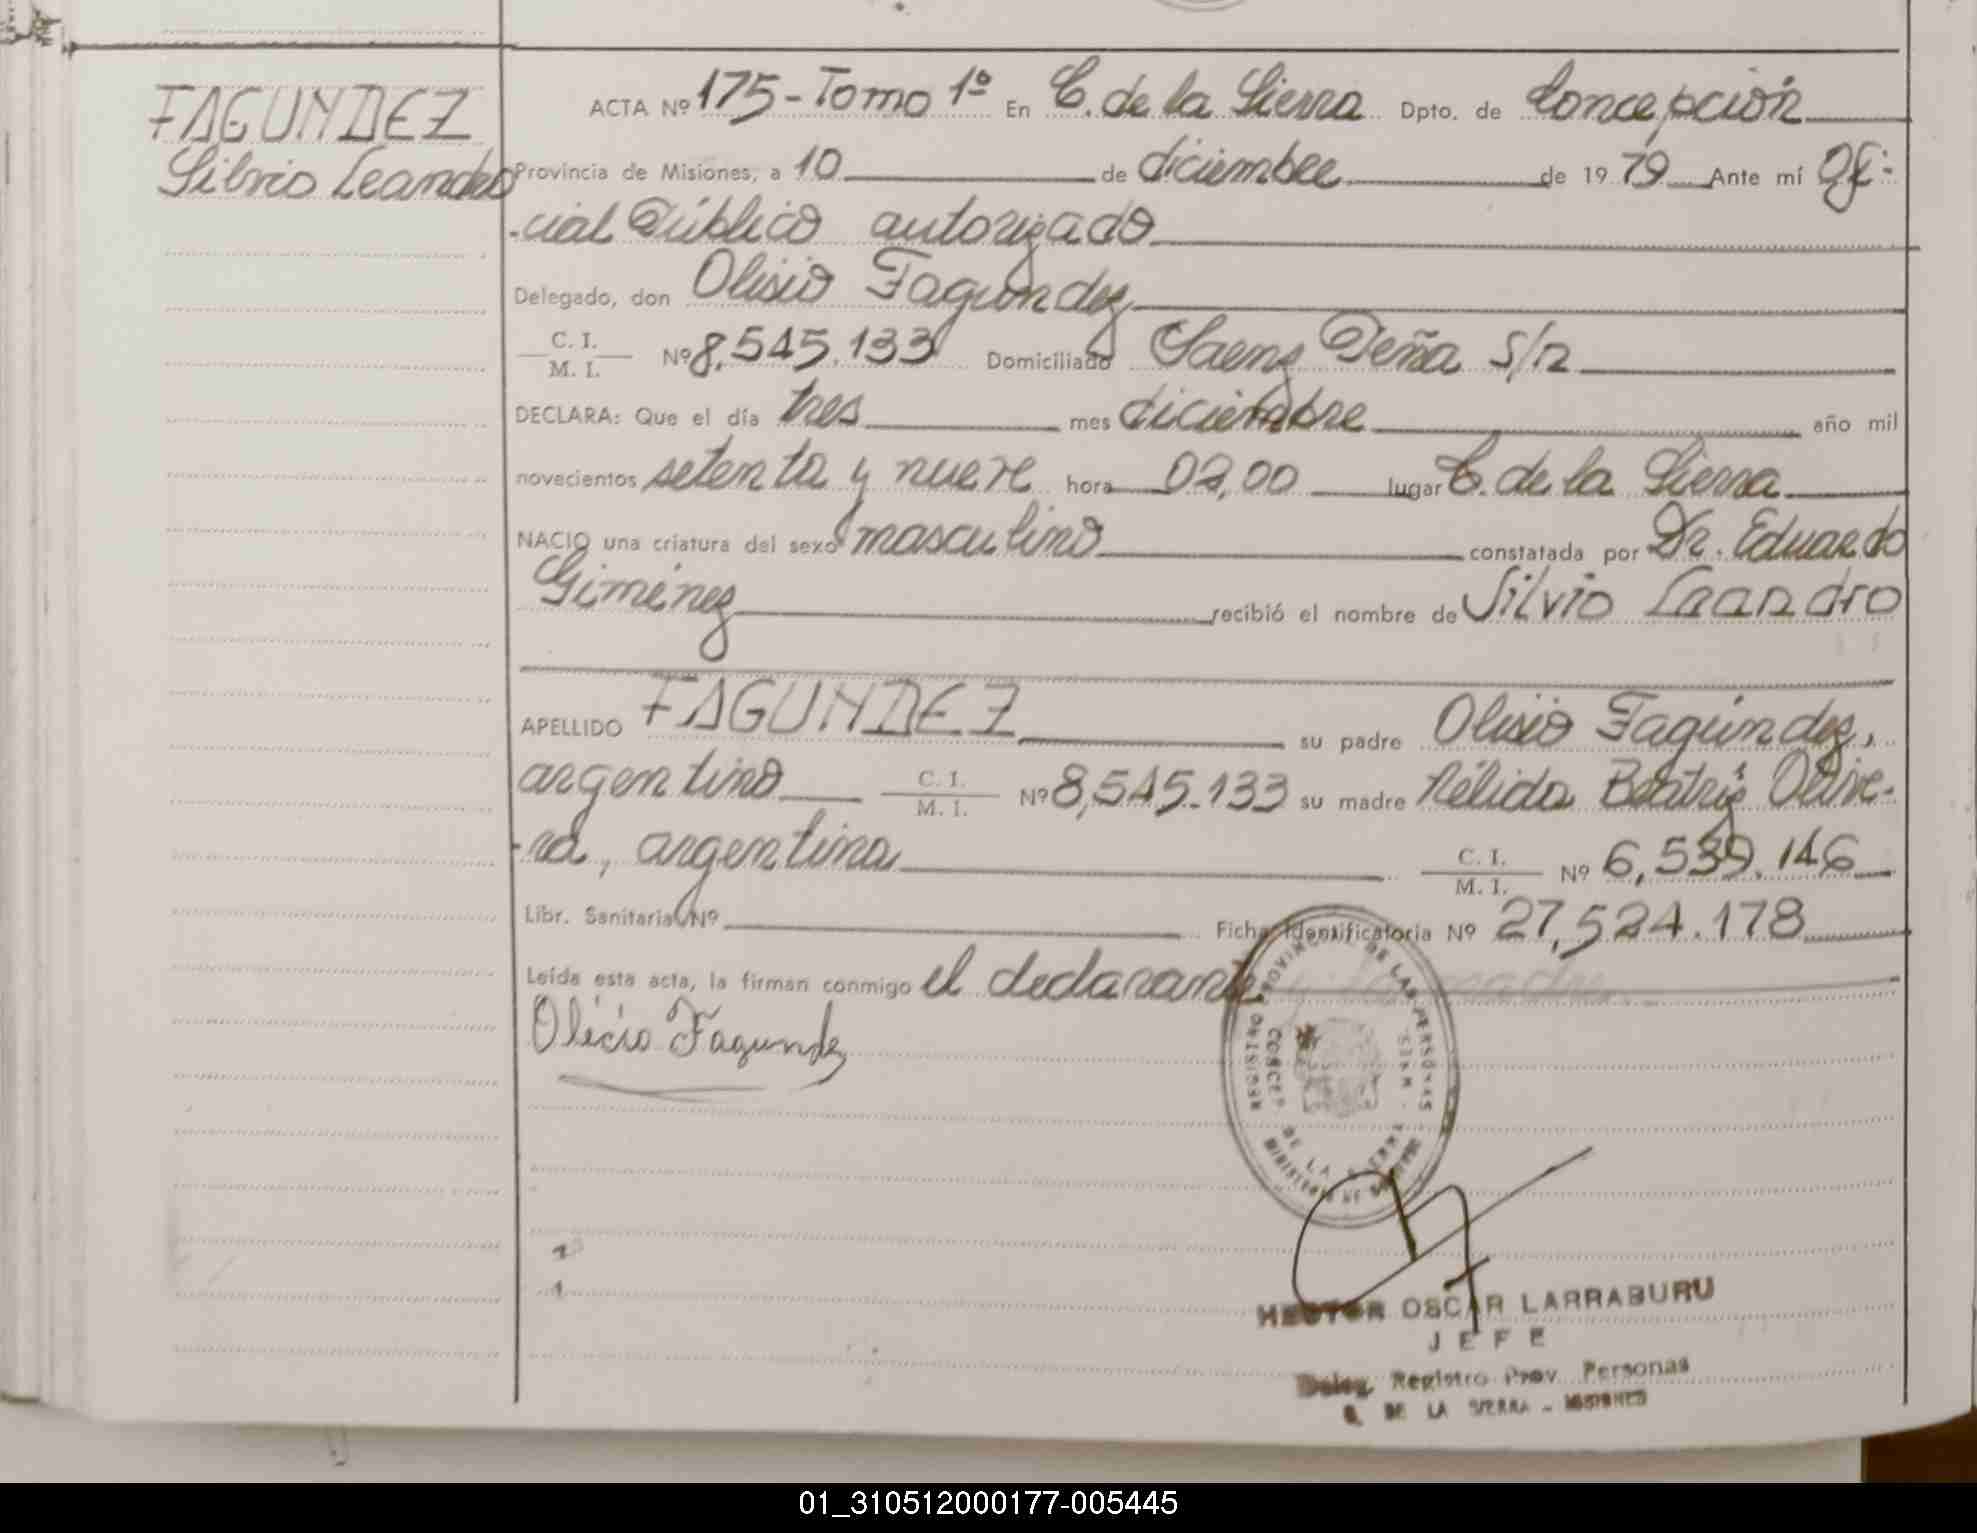 FAGUNDEZ
Silvio Leandro
ACTA Nº 175-Tomo 1º En C. de la Sierra Dpto. de Concepción
Provincia de Misiones, a 10 de diciembre de 1979 Ante mí Ofi-
-cial Público autorizado
Delegado, don Olisio Fagundez
C. I.
M. I. Nº 8.545.133 Domiciliado Saenz Peña s/n
DECLARA: Que el día tres mes diciembre año mil
novecientos setenta y nueve hora 02,00 lugar C. de la Sierra
NACIO una criatura del sexo masculino constatada por Dr. Eduardo
Giménez recibió el nombre de Silvio Leandro
APELLIDO FAGUNDEZ su padre Olisio Fagúndez,
argentino C. I.
M. I. Nº 8,545.133 su madre Nélida Beatriz Olive-
-ra, argentina C. I.
M. I. Nº 6,539.146
Libr. Sanitaria Nº Ficha Identificatoria Nº 27,524.178
Leída esta acta, la firman conmigo el declarante
Olicio Fagundez
DE LAS PERSONAS
DE LA SIERRA
HECTOR OSCAR LARRABURU
JEFE
Deleg. Registro Prov. Personas
C. DE LA SIERRA - MISIONES
01_310512000177-005445